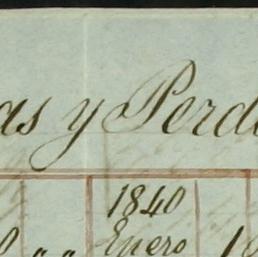 as y Perd
1840
Enero